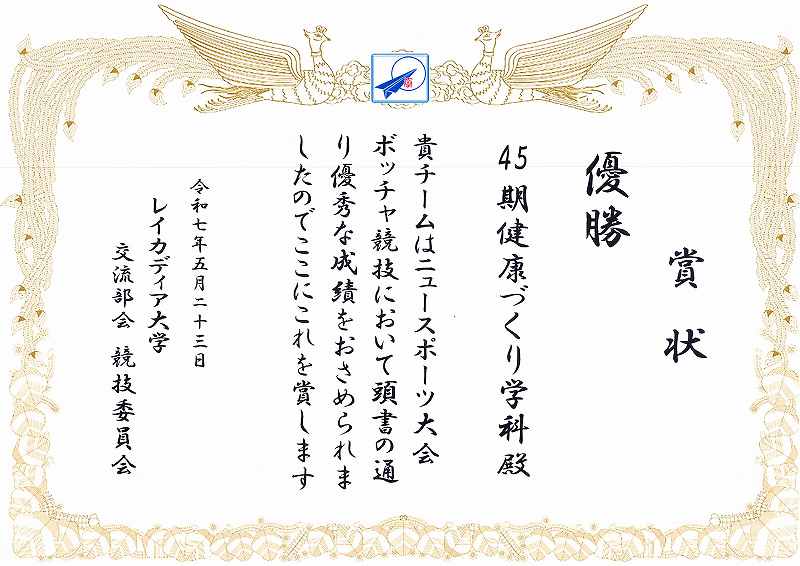 賞状
優勝
45期健康づくり学科殿
貴チームはニュースポーツ大会
ボッチャ競技において頭書の通
り優秀な成績をおさめられま
したのでここにこれを賞します
令和七年五月二十三日
レイカディア大学
交流部会 競技委員会